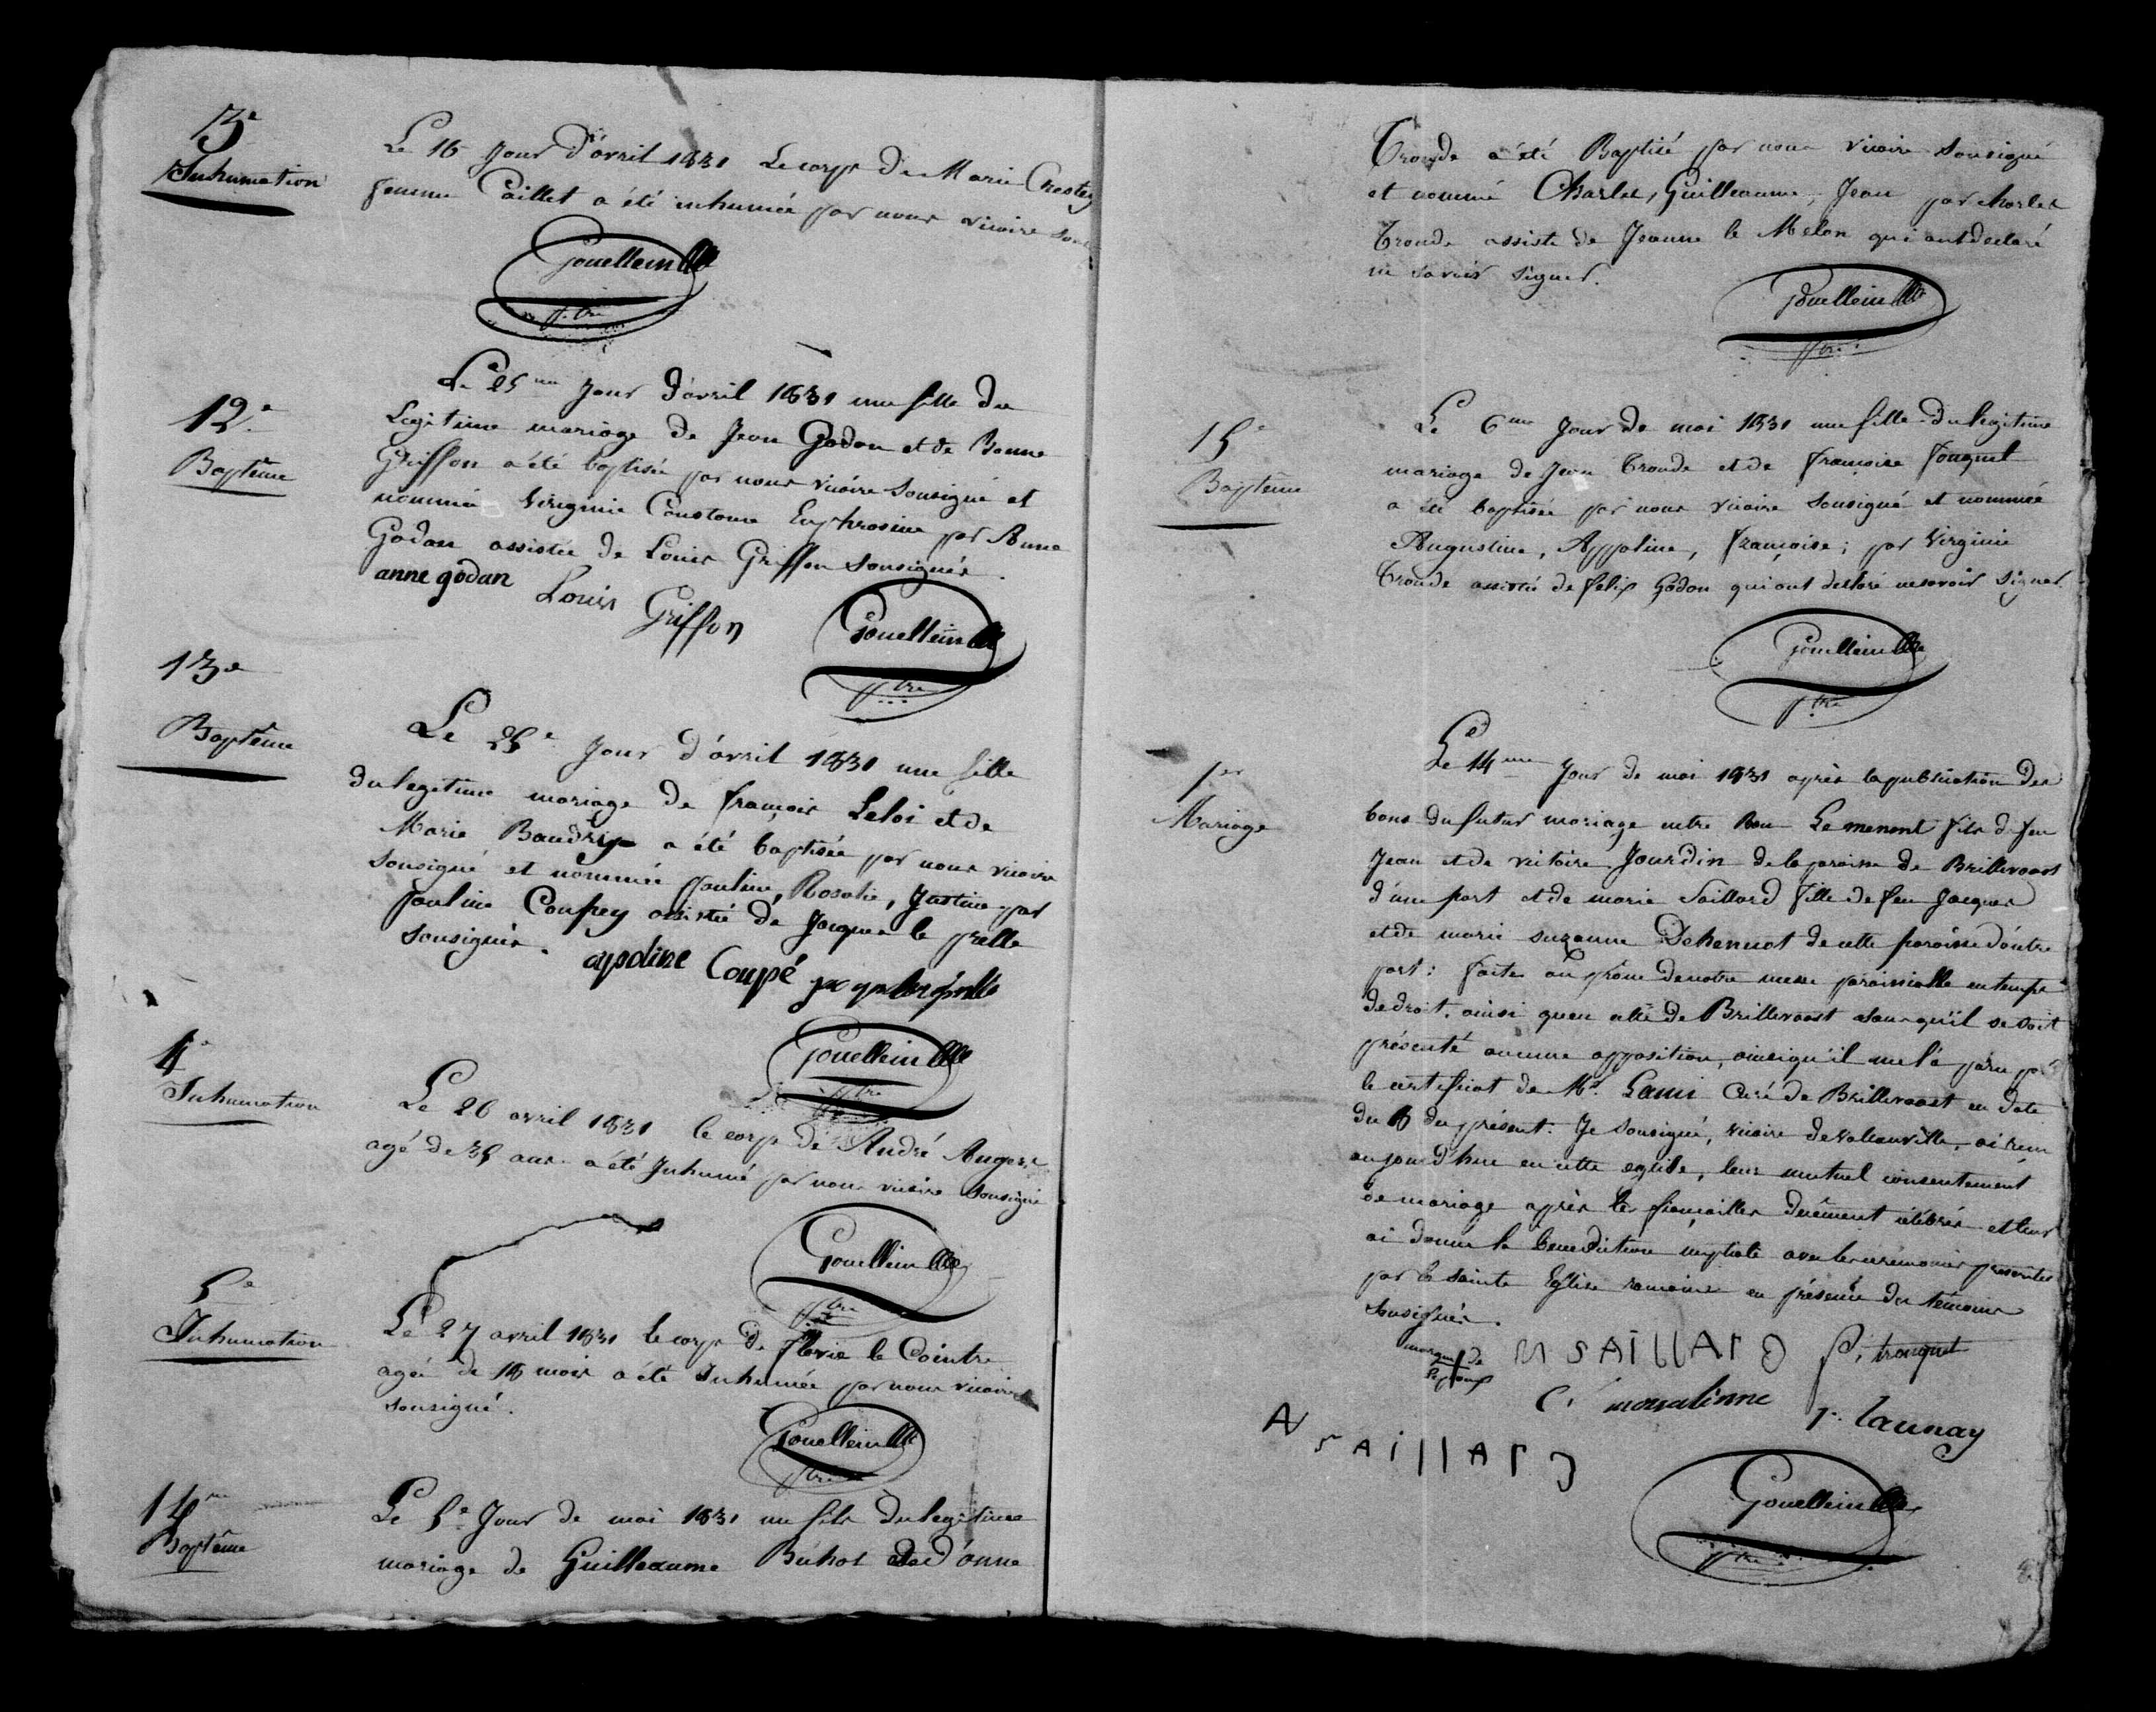 3e
Inhumation
Le 16 Jour d'avril 1831 Le corps de Marie Crestey
femme Caillet a été inhumée par nous vicaire
Gouelleinlle
ptre
12e
Baptême
Le 25me Jour d'avril 1831 une fille du
Legitime mariage de Jean Godan et de Bonne
Griffon a été baptisée par nous vicaire Sousigné et
nommée Virginie Constance Euphrosine par Anne
Godan assistée de Louis Griffon Sousignés.
anne godan Louis Griffon
Gouelleinlle
ptre
13e
Baptême
Le 25e Jour d'avril 1831 une fille
du legetime mariage de françois Leloi et de
Marie Baudry a été baptisée par nous vicaire
Sousigné et nommée pauline, Rosalie, Justine par
pauline Coupey assistée de Jacques le prelle
Sousignés.
apoline Coupé
Gouelleinlle
ptre
4e
Inhumation
Le 26 avril 1831 le corps de André Augers
agé de 35 ans a été Inhumé par nous vicaire Sousigné
Gouelleinlle
ptre
5e
Inhumation
Le 27 avril 1831 Le corps de flavie le Cointre
agée de 18 mois a été Inhumée par nous vicaire
sousigné.
Gouelleinlle
ptre
14me
Baptême
Le 5e Jour de mai 1831 un fils du legitime
mariage de Guilleaume Buhot et d'anne
Troude a été Baptisé par nous vicaire Sousigné
et nommé Charles, Guilleaume, Jean par charles
Troude assisté de Jeanne le Melon qui ont declaré
ne savoir signer.
Gouelleinlle
ptre
15e
Baptême
Le 6me Jour de mai 1831 une fille du legitime
mariage de Jean Troude et de françoise fouquet
a été baptisée par nous vicaire Sousigné et nommée
Augustine, Appoline, françoise; par Virginie
Troude assistée de felix Godan qui ont declaré ne savoir signer
Gouelleinlle
ptre
1er
Mariage
Le 14me Jour de mai 1831 après la publication des
bans du futur mariage entre Bon Le menant fils de feu
Jean et de victoire Jourdin de la paroisse de Brillevast
d'une part et de marie Saillard fille de feu Jacques
et de marie suzanne Dehennot de cette paroisse d'autre
part: faite au prône de notre messe paroissialle en temps
de droit, ainsi qu'en celle de Brillevast sans qu'il se soit
présenté aucune opposition, ainsi qu'il me l'a paru par
le certificat de Mr. Lami Curé de Brillevast en date
du 8 du présent. Je Sousigné, vicaire de valcanville, ai reçu
aujourd'hui en cette eglise, leur mutuel consentement
de mariage après les fiançailles duement célébrés et leur
ai donné la benediction nuptiale avec les ceremonies prescrites
par la sainte Eglise romaine en présence des témoins
Sousignés.
marque de
l'epoux
M SAILLARD
P. trouquet
C. mousatinne
Launay
A SAILLARD
Gouelleinlle
ptre